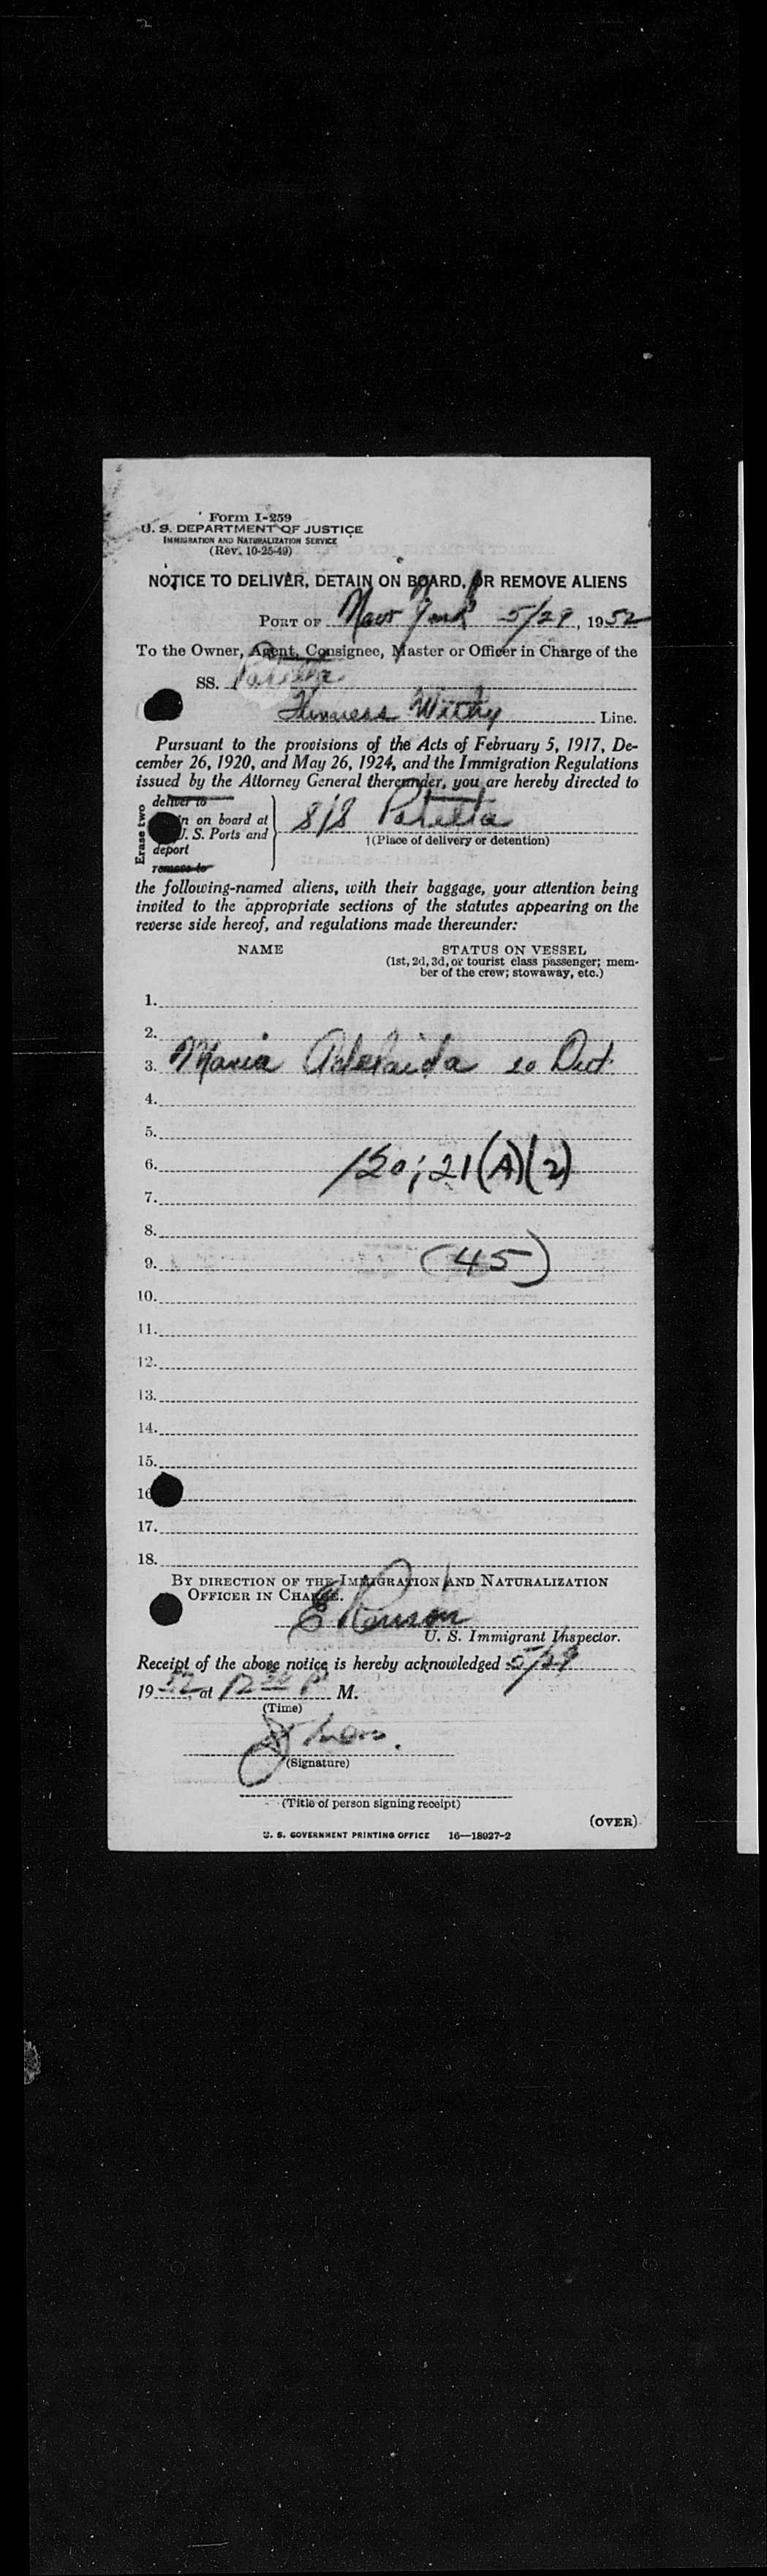 Form I-259
U. S. DEPARTMENT OF JUSTICE
IMMIGRATION AND NATURALIZATION SERVICE
(Rev. 10-25-49)
NOTICE TO DELIVER, DETAIN ON BOARD, OR REMOVE ALIENS
PORT OF New York 5/29, 1952
To the Owner, Agent, Consignee, Master or Officer in Charge of the
SS.
Furness Withy Line.
Pursuant to the provisions of the Acts of February 5, 1917, De-
cember 26, 1920, and May 26, 1924, and the Immigration Regulations
issued by the Attorney General thereunder, you are hereby directed to
Erase two
deliver to
n on board at
U. S. Ports and
deport
remove to
S/S
†(Place of delivery or detention)
the following-named aliens, with their baggage, your attention being
invited to the appropriate sections of the statutes appearing on the
reverse side hereof, and regulations made thereunder:
NAME STATUS ON VESSEL
(1st, 2d, 3d, or tourist class passenger; mem-
ber of the crew; stowaway, etc.)
1.
2.
3. Maria Adelaida
4.
5.
6. 120; 21(A)(2)
7.
8.
9. (45)
10.
11.
12.
13.
14.
15.
16
17.
18.
BY DIRECTION OF THE IMMIGRATION AND NATURALIZATION
OFFICER IN CHARGE.
U. S. Immigrant Inspector.
Receipt of the above notice is hereby acknowledged 5/29
1952 at 12 30 P M.
(Time)
(Signature)
(Title of person signing receipt)
(OVER)
U. S. GOVERNMENT PRINTING OFFICE 16—18927-2